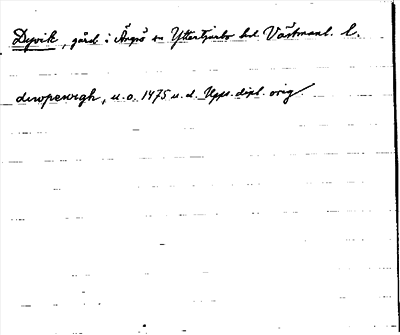 Dyvik, gård i Ängsö sn Yttertjurbo hd. Västmanl. l.
diwpewigh, u.o. 1475 u.d. Upps. dipl. orig